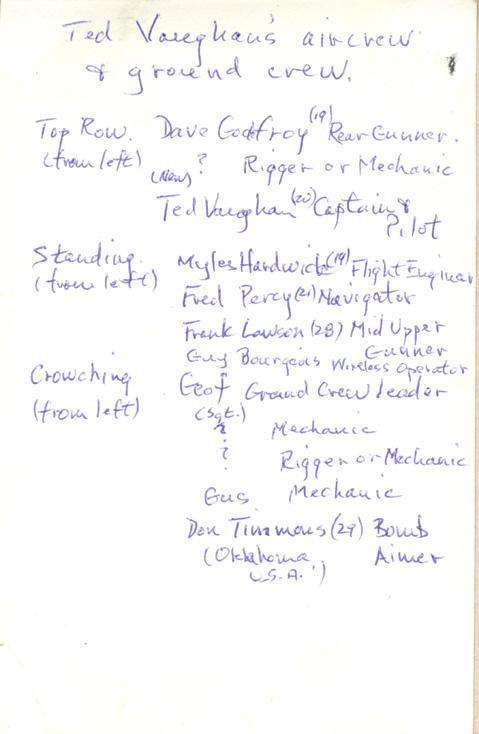 Ted Vaughan's aircrew
& ground crew.
Top Row. Dave Godfroy (19) Rear Gunner.
(from left) (New) ? Rigger or Mechanic
Ted Vaughan (20) Captain &
Pilot
Standing Myles Hardwick (19) Flight Engineer
(from left) Fred Percy (21) Navigator
Frank Lawson (28) Mid Upper
Gunner
Guy Bourgeois Wireless Operator
Crowching Geof Ground Crew leader
(from left) (Sgt.)
? Mechanic
? Rigger or Mechanic
Gus Mechanic
Don (29) Bomb
(Oklahoma Aimer
U.S.A.)